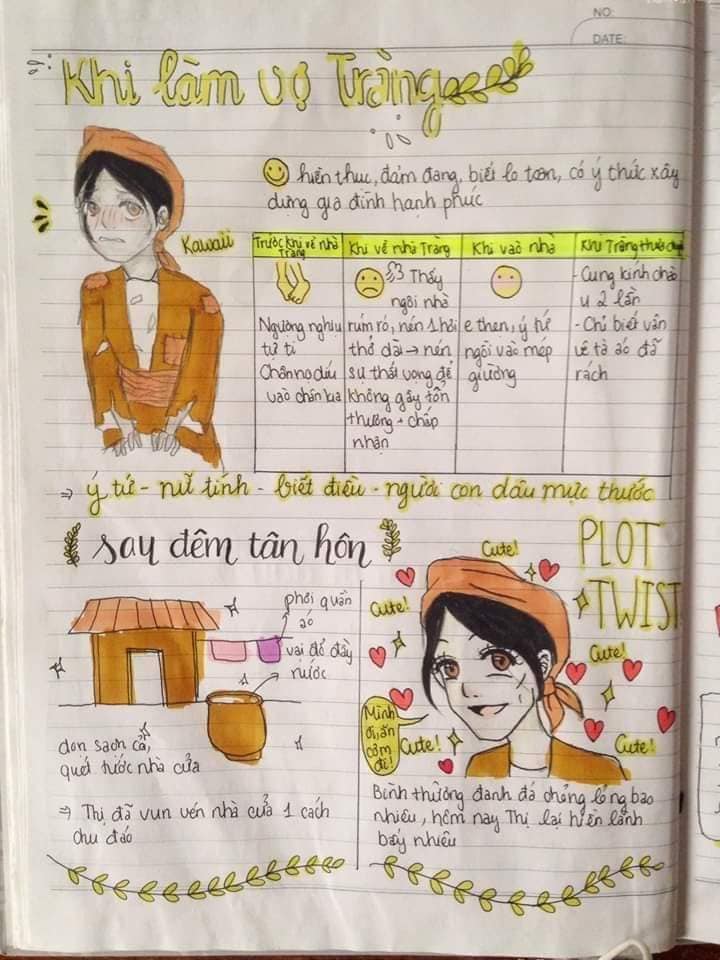 NO:
DATE:
Khi làm vợ Tràng
hiền thục, đảm đang, biết lo toan, có ý thức xây
dựng gia đình hạnh phúc
Kawaii
Trước khi về nhà
Tràng
Ngượng nghịu
tự ti
Chân nọ díu
vào chân kia
Khi về nhà Tràng
Thấy
ngôi nhà
rúm ró, nén 1 hơi
thở dài → nén
sự thất vọng để
không gây tổn
thương + chấp
nhận
Khi vào nhà
e thẹn, ý tứ
ngồi vào mép
giường
Khi Tràng thưa
- Cung kính chào
u 2 lần
- Chỉ biết vân
vê tà áo đã
rách
⇒ ý tứ - nữ tính - biết điều - người con dâu mực thước
sau đêm tân hôn
phơi quần
áo
vai đổ đầy
nước
dọn sạch cả,
quét tước nhà cửa
⇒ Thị đã vun vén nhà cửa 1 cách
chu đáo
PLOT
TWIST
Cute!
Cute!
Cute!
Cute!
Cute!
Mình
ơi, ăn
cơm
đi!
Bình thường đanh đá chỏng lỏng bao
nhiêu, hôm nay Thị lại hiền lành
bấy nhiêu